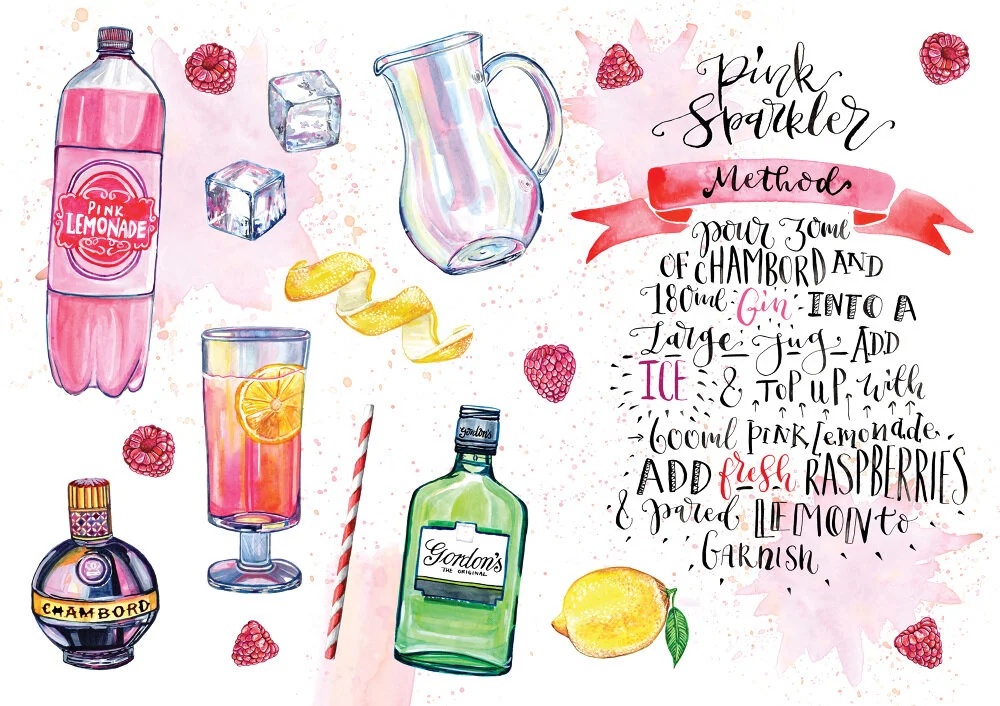 Pink
Sparkler
Method
pour 30ml
OF CHAMBORD AND
180ml Gin INTO A
Large Jug ADD
ICE & TOP UP with
600ml PINK Lemonade
ADD fresh RASPBERRIES
& pared LEMON to
GARNISH
PINK
LEMONADE
CHAMBORD
Gordon's
Gordon's
THE ORIGINAL